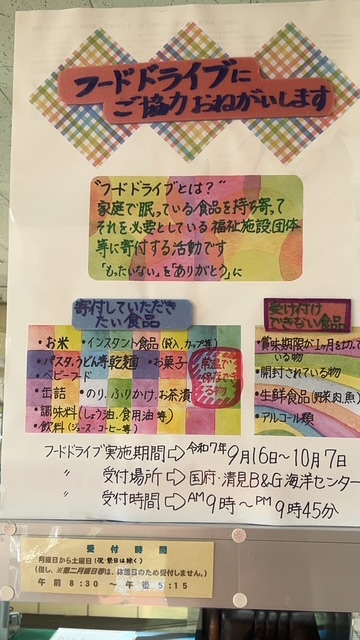 フードドライブに
ご協力おねがいします
"フードドライブとは?"
家庭で眠っている食品を持ち寄って
それを必要としている福祉施設団体
等に寄付する活動です
「もったいない」を「ありがとう」に
寄付していただき
たい食品
・お米 ・インスタント食品(袋入、カップ等)
・パスタ、うどん等乾麺 ・お菓子
・ベビーフード
・缶詰 ・のり、ふりかけ、お茶漬
・調味料(しょう油、食用油等)
・飲料(ジュース・コーヒー等)
常温で
保存でき
る物
受け付け
できない食品
・賞味期限が1ヶ月を切って
いる物
・開封されている物
・生鮮食品(野菜、肉、魚)
・アルコール類
フードドライブ実施期間⇨令和7年9月16日〜10月7日
〃 受付場所⇨国府・清見B&G海洋センター
〃 受付時間⇨AM9時〜PM9時45分
受付時間
月曜日から土曜日(祝祭日は除く)
(但し、※第二月曜日は、休館日のため受付しません。)
午前8:30〜午後5:15